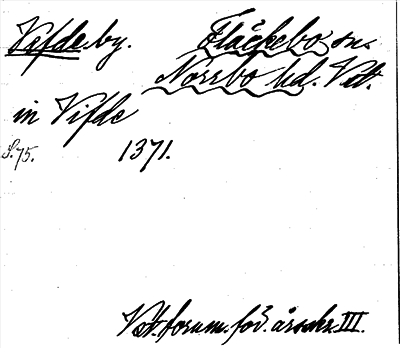 Vifde. by. Fläckebo sn.
Norrbo hd. Vstt.
in Vifde
S. 75. 1371.
Vst. fornm.för. årsskr. III.